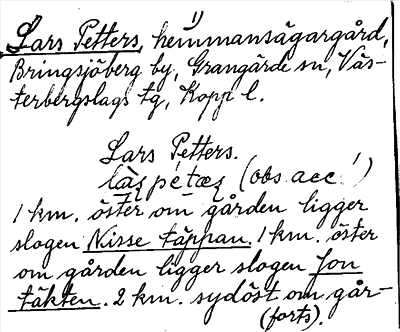 1)
Lars Petters, hemmansägargård,
Bringsjöberg by, Grangärde sn, Väs-
terbergslags tg, Kopp l.
Lars Petters.
(obs. acc.!)
1 km. öster om gården ligger
slogen Nisse täppan. 1 km. öster
om gården ligger slogen Jon
täkten. 2 km. sydöst om går-
(forts).